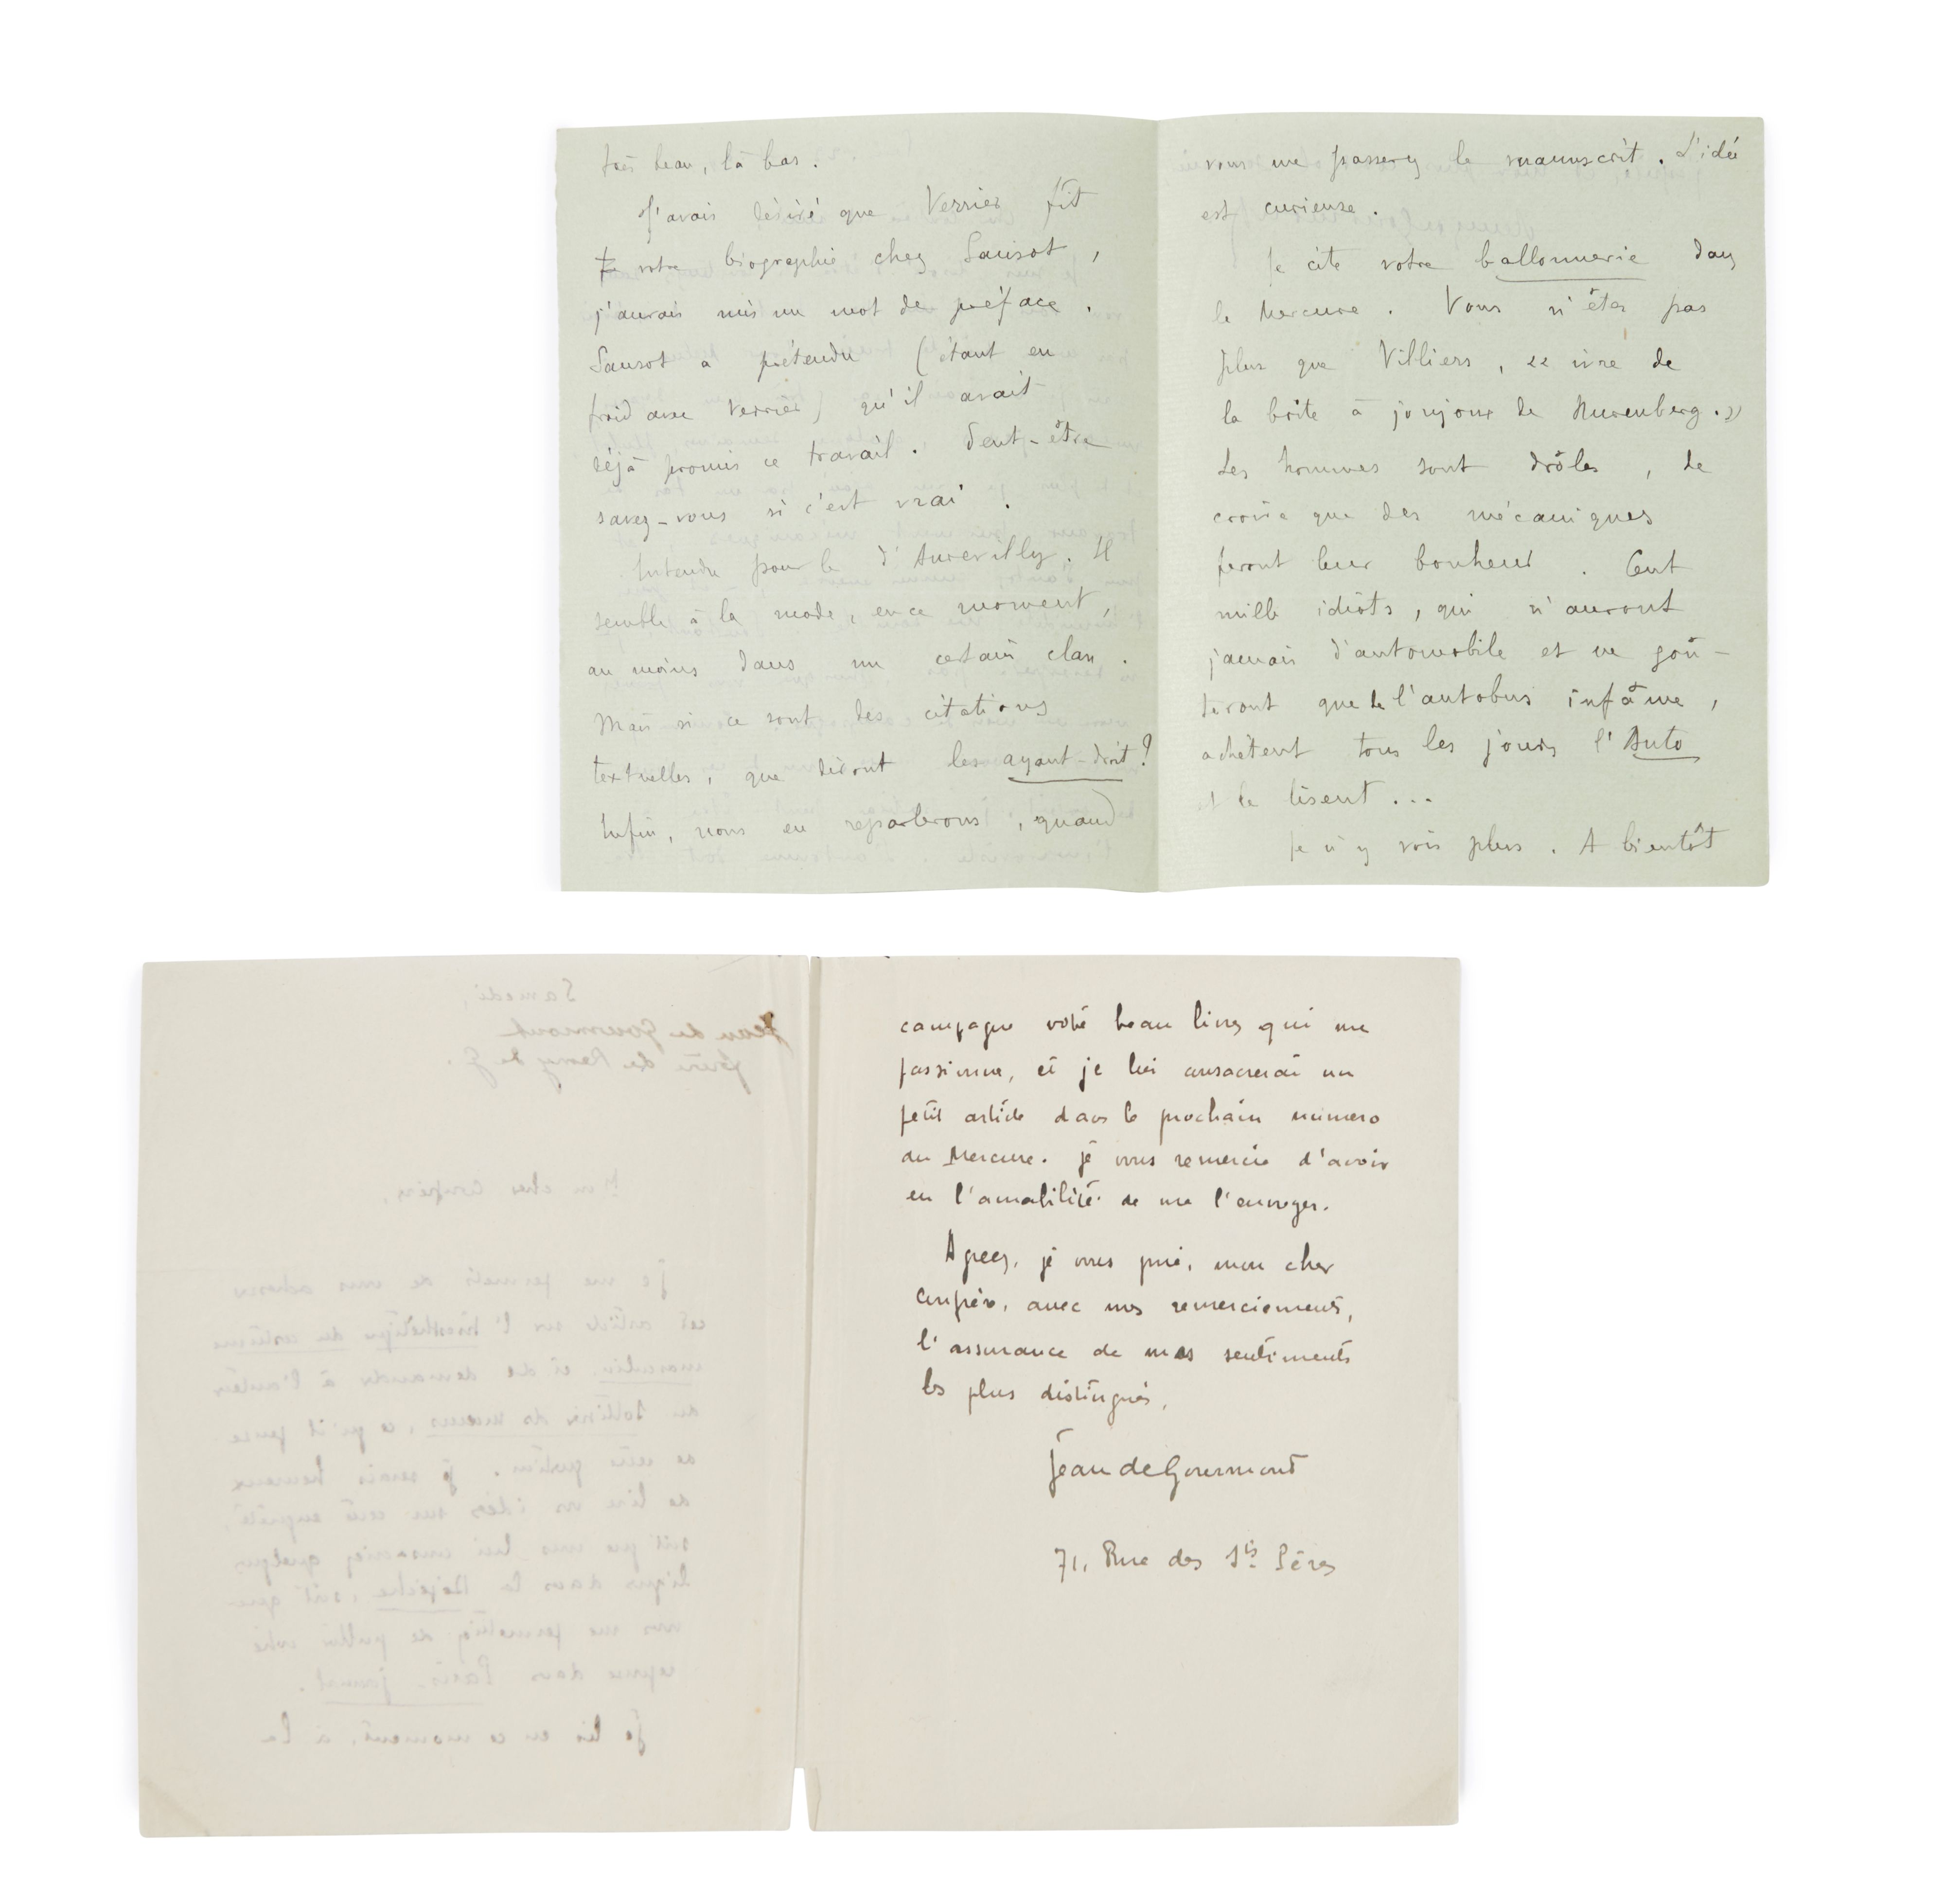 très beau, là bas.
J'avais désiré que Verrier fît
votre biographie chez Sansot,
j'aurais mis un mot de préface.
Sansot a prétendu (étant en
froid avec Verrier) qu'il avait
déjà promis ce travail. Peut-être
savez-vous si c'est vrai.
Entendu pour le d'Aurevilly. Il
semble à la mode, en ce moment,
au moins dans un certain clan.
Mais si ce sont des citations
textuelles, que diront les ayant-droit?
Enfin, nous en reparlerons, quand
vous me passerez le manuscrit. L'idée
est curieuse.
Je cite votre ballonnerie dans
le Mercure. Vous n'êtes pas
plus que Villiers, « ivre de
la boîte à joujoux de Nuremberg. »
Les hommes sont drôles, de
croire que des mécaniques
feront leur bonheur. Cent
mille idiots, qui n'auront
jamais d'automobile et ne goû-
teront que de l'autobus infâme,
achètent tous les jours l'Auto
et le lisent...
Je n'y vois plus. A bientôt
Samedi,
Jean de Gourmont
frère de Remy de G.
Mon cher Confrère,
je me permets de vous adresser
cet article sur l'inesthétique du costume
masculin, et de demander à l'auteur
du , ce qu'il pense
de cette question. je serais heureux
de lire vos idées sur cette enquête,
soit que vous lui consacriez quelques
lignes dans la Dépêche, soit que
vous me permettiez de publier votre
réponse dans Paris-journal.
Je lis en ce moment, à la
campagne votre beau livre qui me
passionne, et je lui consacrerai un
petit article dans le prochain numero
du Mercure. je vous remercie d'avoir
eu l'amabilité de me l'envoyer.
Agreez, je vous prie, mon cher
Confrère, avec mes remerciements,
l'assurance de mes sentiments
les plus distingués,
Jean de Gourmont
71, Rue des Sts Pères